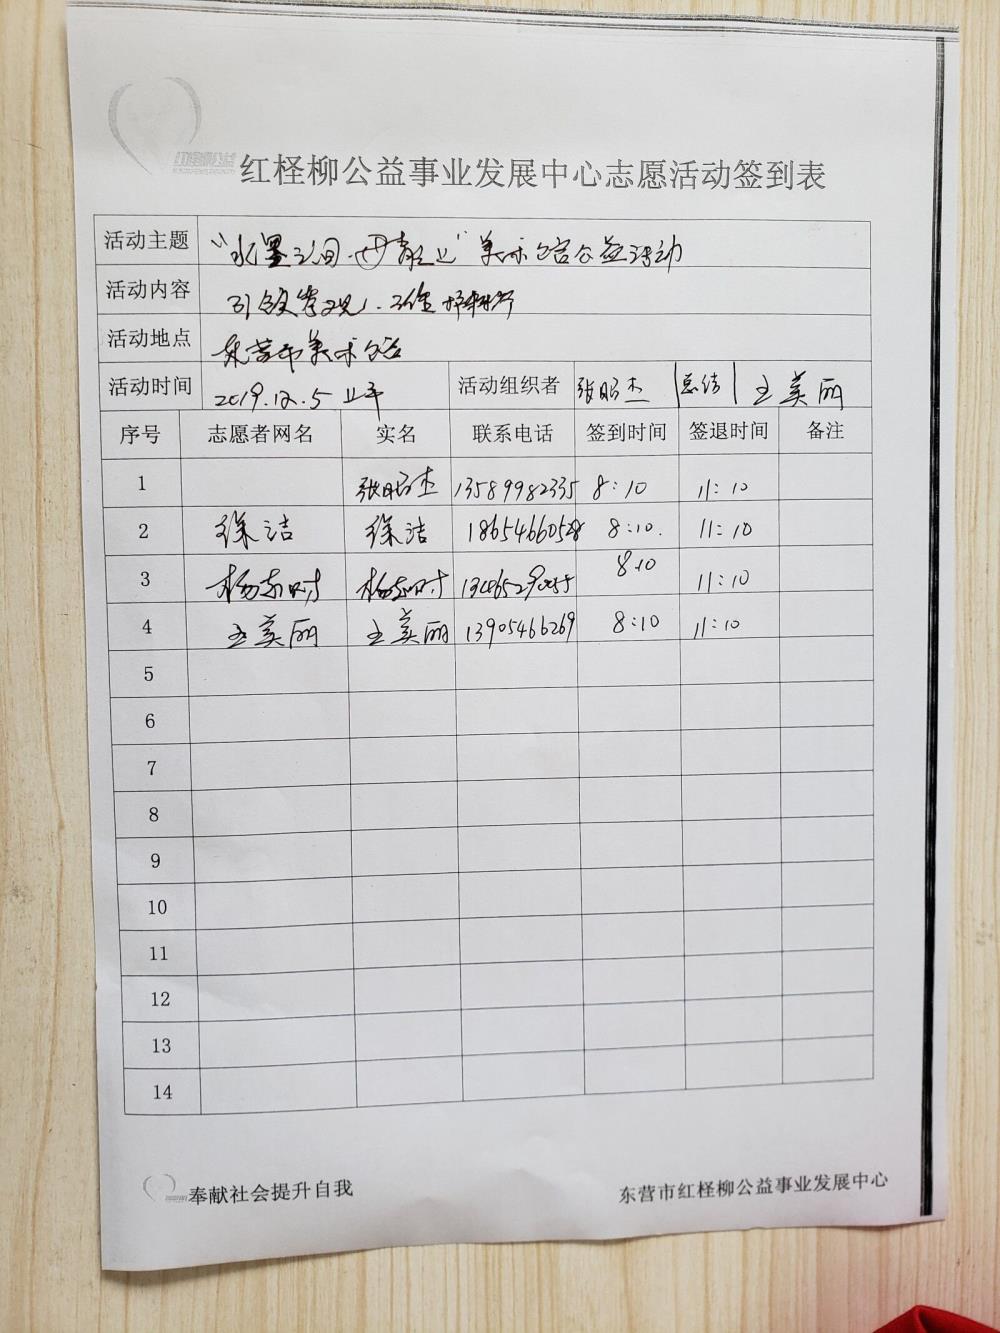 红柽柳公益事业发展中心志愿活动签到表
活动主题 "水墨之间 美术馆公益活动
活动内容 引领参观、
活动地点 东营市美术馆
活动时间 2019.12.5 上午 活动组织者 张昭杰 总结 王美丽
序号 志愿者网名 实名 联系电话 签到时间 签退时间 备注
1 张昭杰 13589982335 8:10 11:10
2 徐洁 徐洁 18654660528 8:10. 11:10
3 8:10 11:10
4 王美丽 王美丽 13905466269 8:10 11:10
5
6
7
8
9
10
11
12
13
14
奉献社会提升自我 东营市红柽柳公益事业发展中心